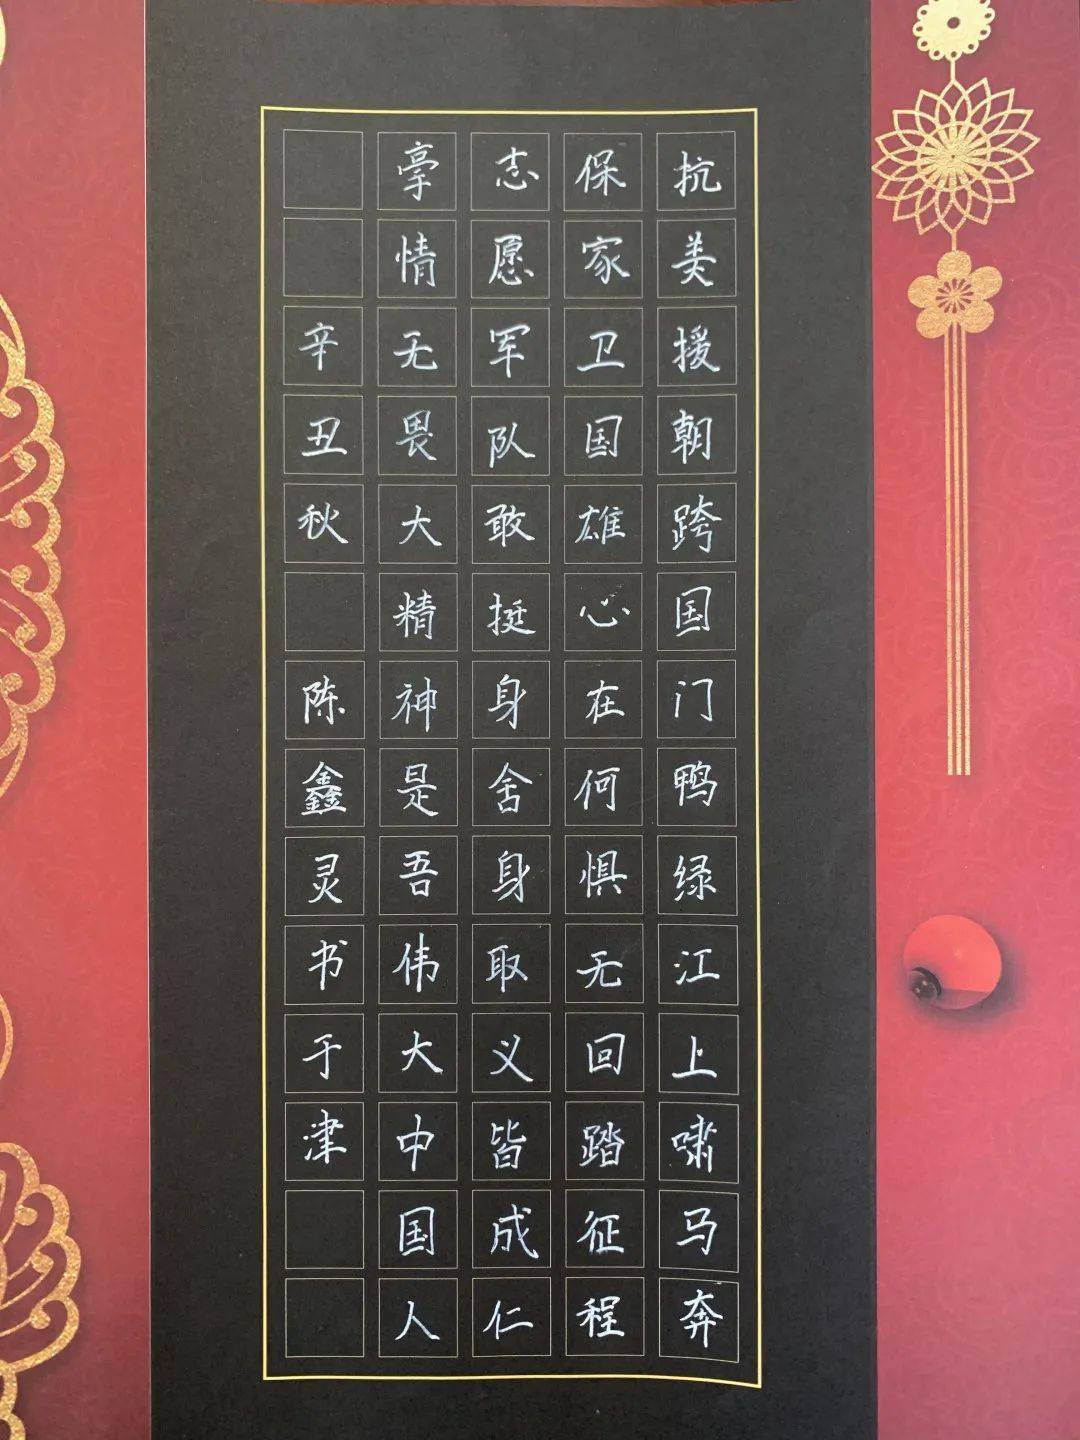 抗美援朝跨国门鸭绿江上啸马奔
保家卫国雄心在何惧无回踏征程
志愿军队敢挺身舍身取义皆成仁
豪情无畏大精神是吾伟大中国人
辛丑秋 陈鑫灵书于津